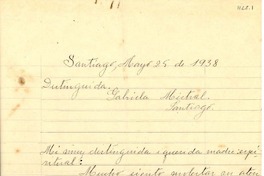 Santiago, Mayo 25 de 1938
Distinguida.
Gabriela Mistral.
Santiago.
Mi muy distinguida i querida madre espi
ritual:
Mucho siento molestar su aten